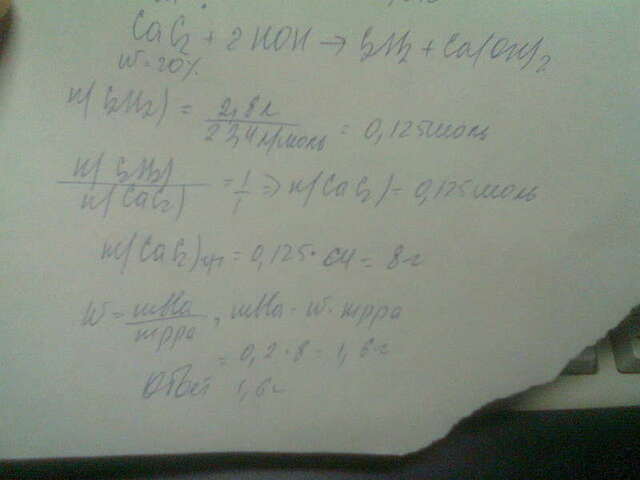 CaC2 + 2HOH → C2H2 + Ca(OH)2
w=20%
n(C2H2) = 2,8л / 22,4л/моль = 0,125моль
n(C2H2) / n(CaC2) = 1/1 => n(CaC2) = 0,125моль
m(CaC2) = 0,125 · 64 = 8г
w = mва / mрра , mва = w · mрра
= 0,2 · 8 = 1,6г
Ответ 1,6г